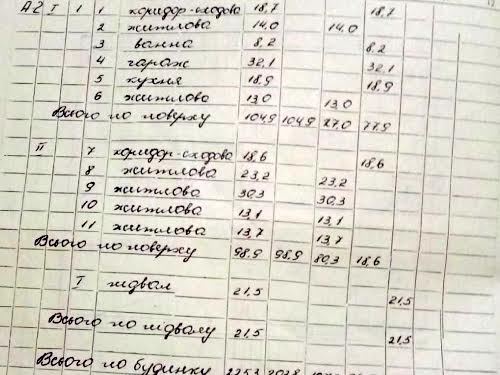 А2 I 1 1 коридор-сходова 18,7 18,7
2 житлова 14,0 14,0
3 ванна 8,2 8,2
4 гараж 32,1 32,1
5 кухня 18,9 18,9
6 житлова 13,0 13,0
Всього по поверху 104,9 104,9 27,0 77,9
II 7 коридор-сходова 18,6 18,6
8 житлова 23,2 23,2
9 житлова 30,3 30,3
10 житлова 13,1 13,1
11 житлова 13,7 13,7
Всього по поверху 98,9 98,9 80,3 18,6
I підвал 21,5 21,5
Всього по підвалу 21,5 21,5
Всього по будинку 225,3 203,8